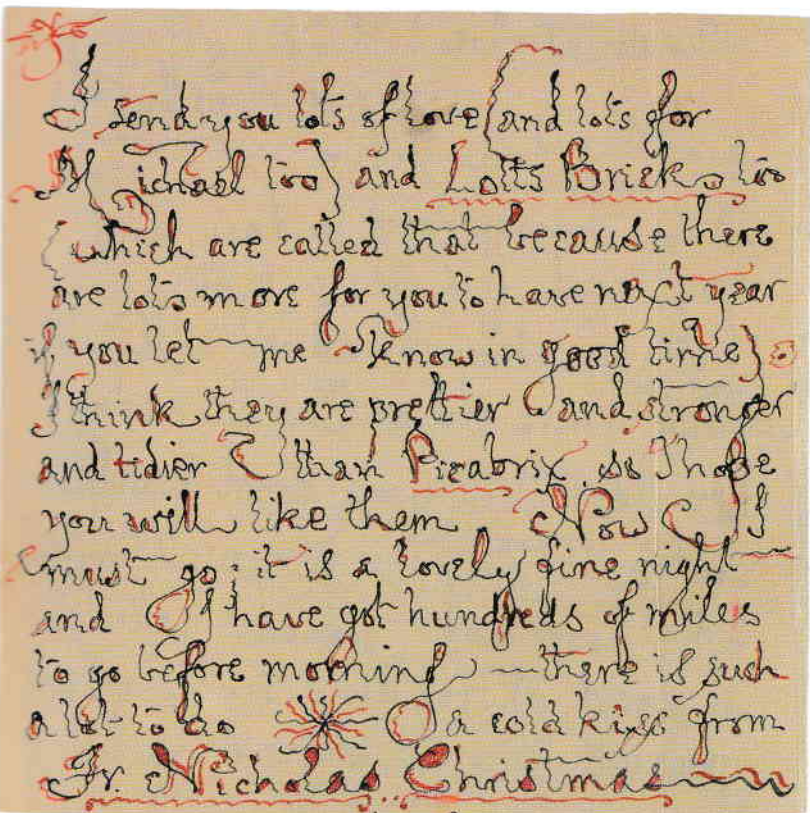 I send you lots of love (and lots for
Michael too) and Lotts Bricks too
(which are called that because there
are lots more for you to have next year
if you let me know in good time).
I think they are prettier and stronger
and tidier than Picabrix so I hope
you will like them Now I
must go; it is a lovely fine night
and I have got hundreds of miles
to go before morning — there is such
a lot to do
a cold kiss from
Fr. Nicholas Christmas